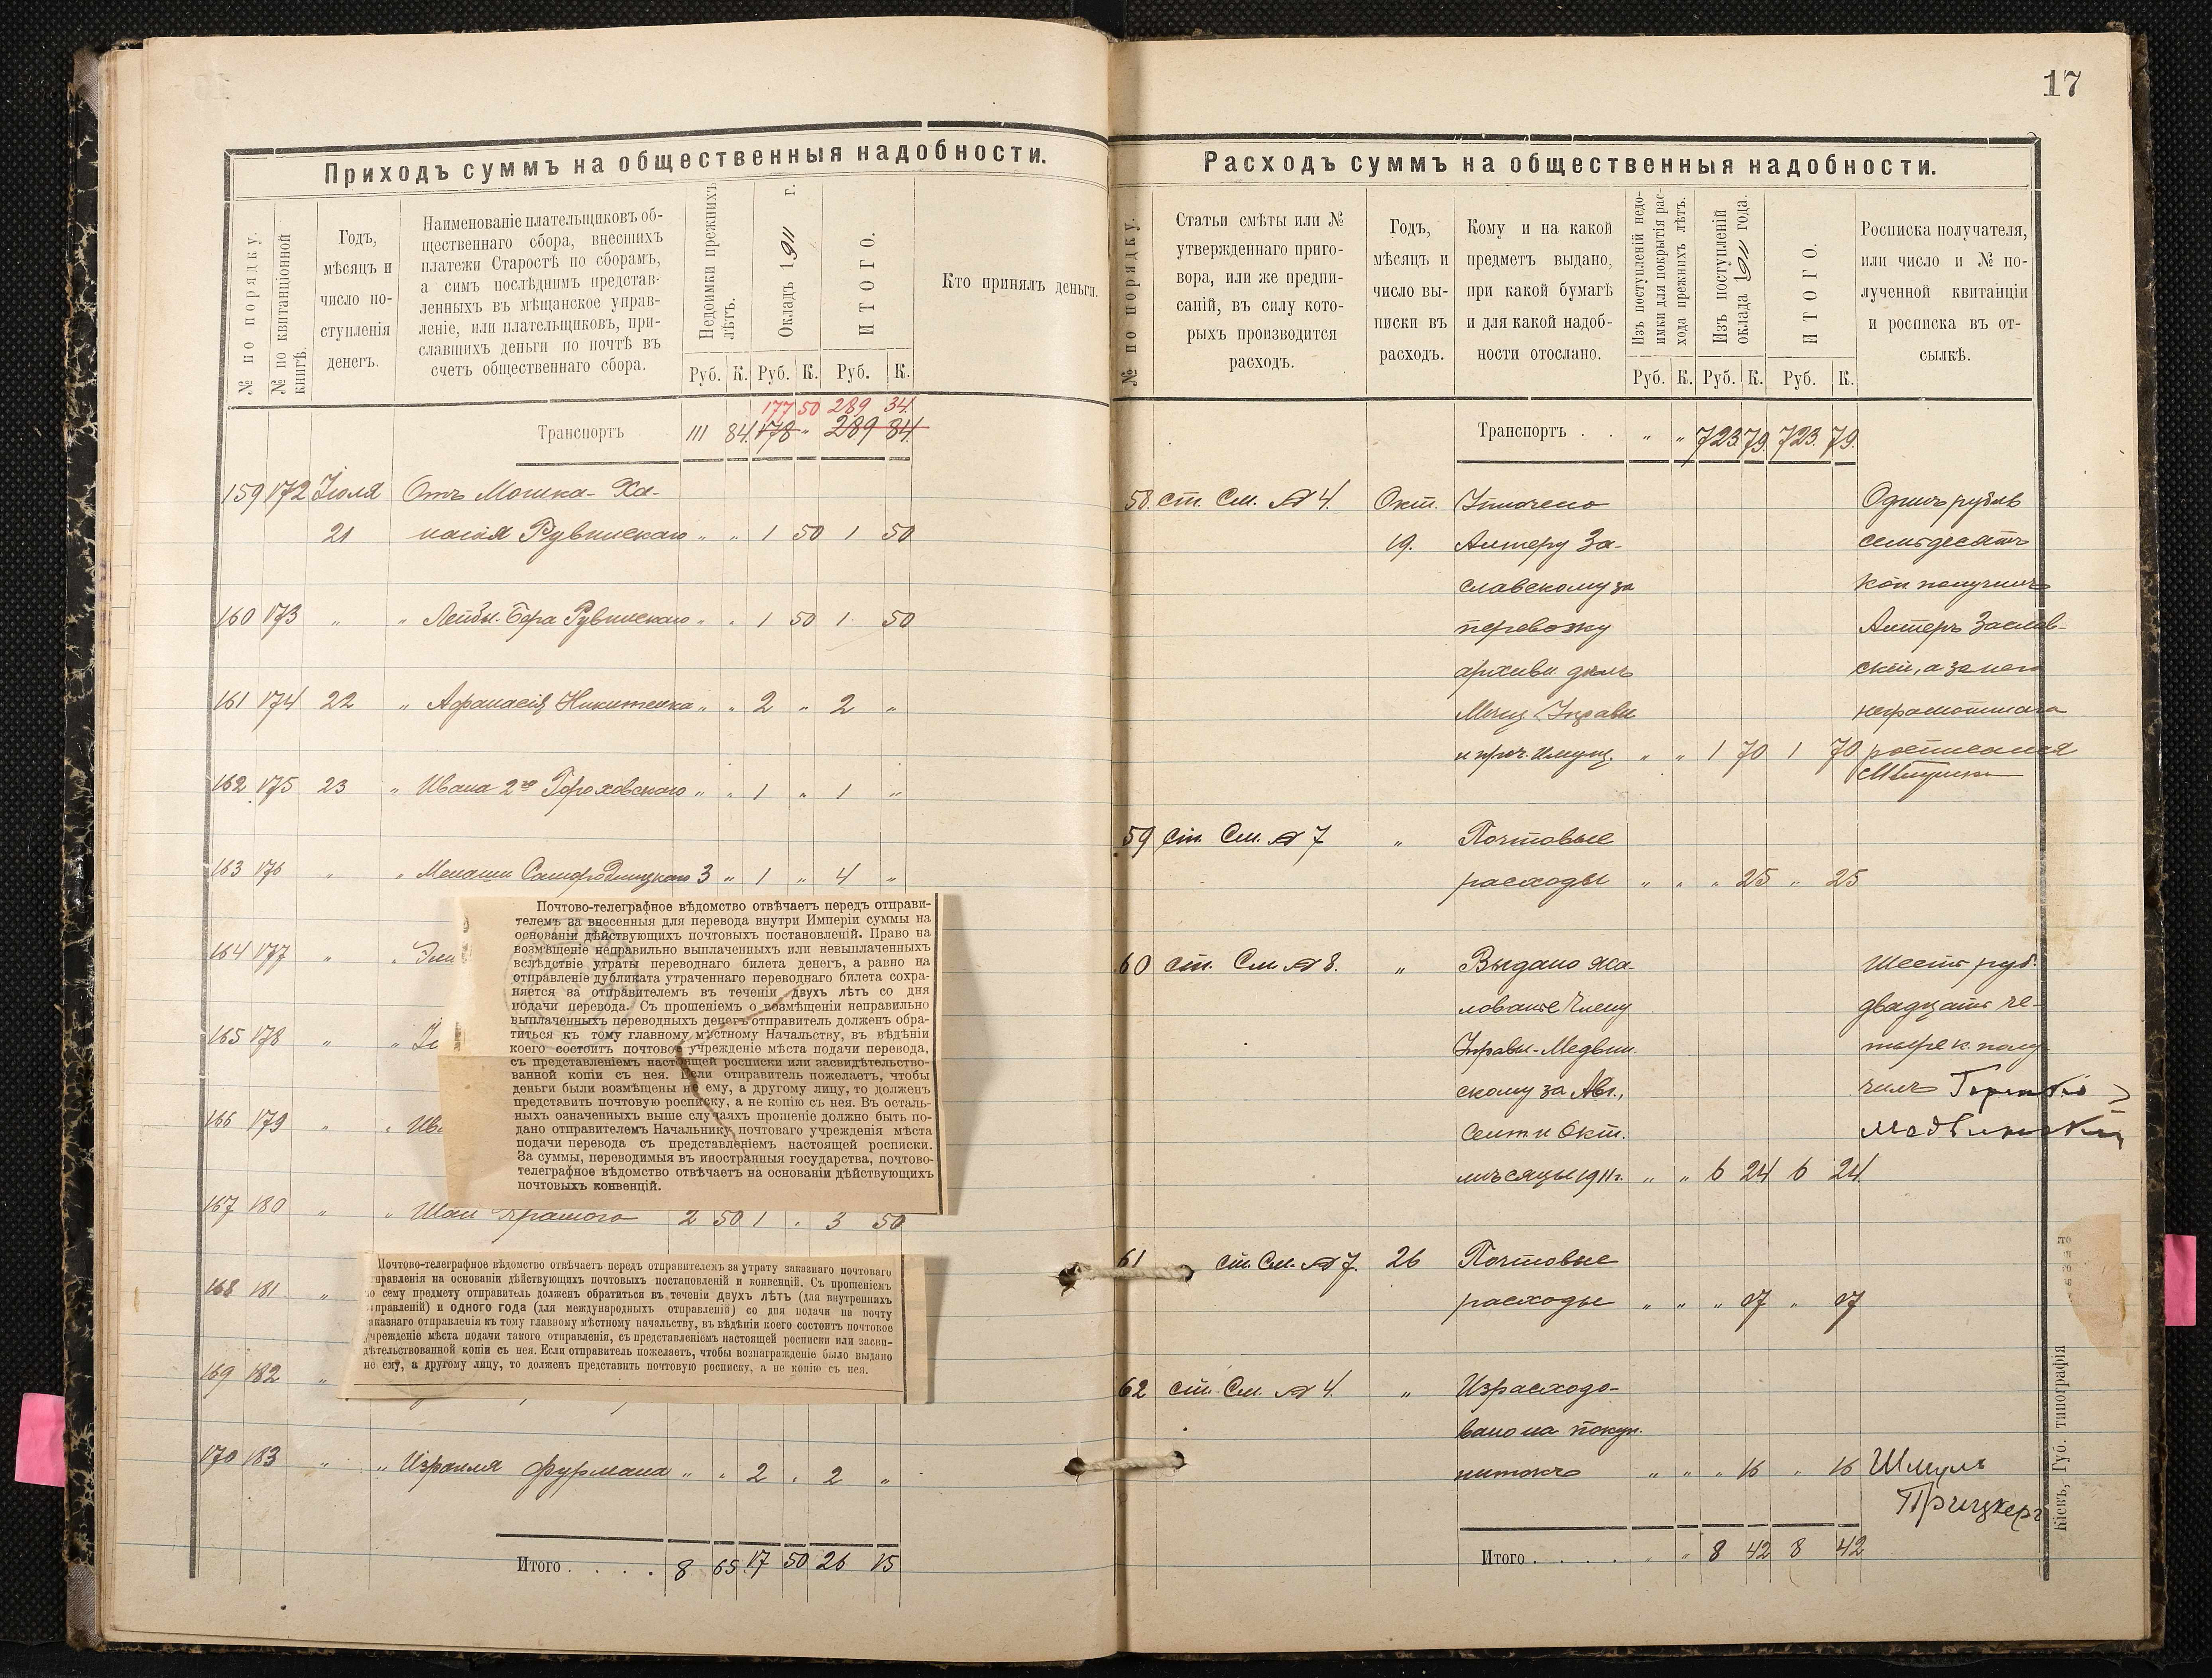 Приходъ суммъ на общественныя надобности.
№ по порядку.
№ по квитанціонной книгѣ.
Годъ,
мѣсяцъ и
число по-
ступленія
денегъ.
Наименованіе плательщиковъ об-
щественнаго сбора, внесшихъ
платежи Старостѣ по сборамъ,
а симъ послѣднимъ представ-
ленныхъ въ мѣщанское управ-
леніе, или плательщиковъ, при-
славшихъ деньги по почтѣ въ
счетъ общественнаго сбора.
Недоимки прежнихъ
лѣтъ.
Окладъ 1911 г.
ИТОГО.
Кто принялъ деньги.
Руб. К. Руб. К. Руб. К.
177 50 289 34.
Транспортъ 111 84. 178 " 289 84.
159 172 Іюля Отъ Мошка-Ха-
21 наоія Рувинскаго " " 1 50 1 50
160 173 " " Лейбы-Бера Рувинскаго " " 1 50 1 50
161 174 22 " Афанасія Никитенка " " 2 " 2 "
162 175 23 " Ивана 2го Гороховскаго " " 1 " 1 "
163 176 " " Менаши 3 " 1 " 4 "
164 177 " "
165 178 " "
166 179 " "
167 180 " " Шаи Храмого 2 50 1 " 3 50
168 181 "
169 182 "
170 183 " " Израиля Фурмана " " 2 " 2 "
Итого . . . . 8 65 17 50 26 15
Почтово-телеграфное вѣдомство отвѣчаетъ передъ отправи-
телемъ за внесенныя для перевода внутри Имперіи суммы на
основаніи дѣйствующихъ почтовыхъ постановленій. Право на
возмѣщеніе неправильно выплаченныхъ или невыплаченныхъ
вслѣдствіе утраты переводнаго билета денегъ, а равно на
отправленіе дубликата утраченнаго переводнаго билета сохра-
няется за отправителемъ въ теченіи двухъ лѣтъ со дня
подачи перевода. Съ прошеніемъ о возмѣщеніи неправильно
выплаченныхъ переводныхъ денегъ отправитель долженъ обра-
титься къ тому главному мѣстному Начальству, въ вѣдѣніи
коего состоитъ почтовое учрежденіе мѣста подачи перевода,
съ представленіемъ настоящей росписки или засвидѣтельство-
ванной копіи съ нея. Если отправитель пожелаетъ, чтобы
деньги были возмѣщены не ему, а другому лицу, то долженъ
представить почтовую росписку, а не копію съ нея. Въ осталь-
ныхъ означенныхъ выше случаяхъ прошеніе должно быть по-
дано отправителемъ Начальнику почтоваго учрежденія мѣста
подачи перевода съ представленіемъ настоящей росписки.
За суммы, переводимыя въ иностранныя государства, почтово-
телеграфное вѣдомство отвѣчаетъ на основаніи дѣйствующихъ
почтовыхъ конвенцій.
Почтово-телеграфное вѣдомство отвѣчаетъ передъ отправителемъ за утрату заказнаго почтоваго
правленія на основаніи дѣйствующихъ почтовыхъ постановленій и конвенцій. Съ прошеніемъ
по сему предмету отправитель долженъ обратиться въ теченіи двухъ лѣтъ (для внутреннихъ
правленій) и одного года (для международныхъ отправленій) со дня подачи на почту
заказнаго отправленія къ тому главному мѣстному начальству, въ вѣдѣніи коего состоитъ почтовое
учрежденіе мѣста подачи такого отправленія, съ представленіемъ настоящей росписки или засви-
дѣтельствованной копіи съ нея. Если отправитель пожелаетъ, чтобы вознагражденіе было выдано
не ему, а другому лицу, то долженъ представить почтовую росписку, а не копію съ нея.
17
Расходъ суммъ на общественныя надобности.
№ по порядку.
Статьи смѣты или №
утвержденнаго приго-
вора, или же предпи-
саній, въ силу кото-
рыхъ производится
расходъ.
Годъ,
мѣсяцъ и
число вы-
писки въ
расходъ.
Кому и на какой
предметъ выдано,
при какой бумагѣ
и для какой надоб-
ности отослано.
Изъ поступленій недо-
имки для покрытія рас-
хода прежнихъ лѣтъ.
Изъ поступленій
оклада 1911 года.
ИТОГО.
Росписка получателя,
или число и № по-
лученной квитанціи
и росписка въ от-
сылкѣ.
Руб. К. Руб. К. Руб. К.
Транспортъ . . " " 723 79. 723. 79.
58. ст. См. № 4. Окт. Уплачено Одинъ рубль
19. Алтеру За- семьдесятъ
славскому за коп получилъ
перевозку Алтеръ Заслав-
архива дѣлъ скій, а за него
Мѣщ. Управы неграмотнаго
и проч. имущ. " " 1 70 1 70 росписался
59 ст. См. № 7 " Почтовые
расходы " " " 25 " 25
60 ст. См № 8. " Выдано жа- Шесть руб.
лованье Члену двадцать че-
Управы-Медвин- тыре к. полу-
скому за Авг., чилъ
Сент и Окт. Медвинскій
мѣсяцы 1911 г. " " 6 24 6 24
61 ст. См. № 7. 26 Почтовые
расходы " " " 07 " 07
62 ст. См. № 4. " Израсходо-
вано на покуп.
нитокъ " " " 16 " 16 Шмуль
Прицкеръ
Итого . . . . " " 8 42 8 42
Кіевъ, Губ. типографія